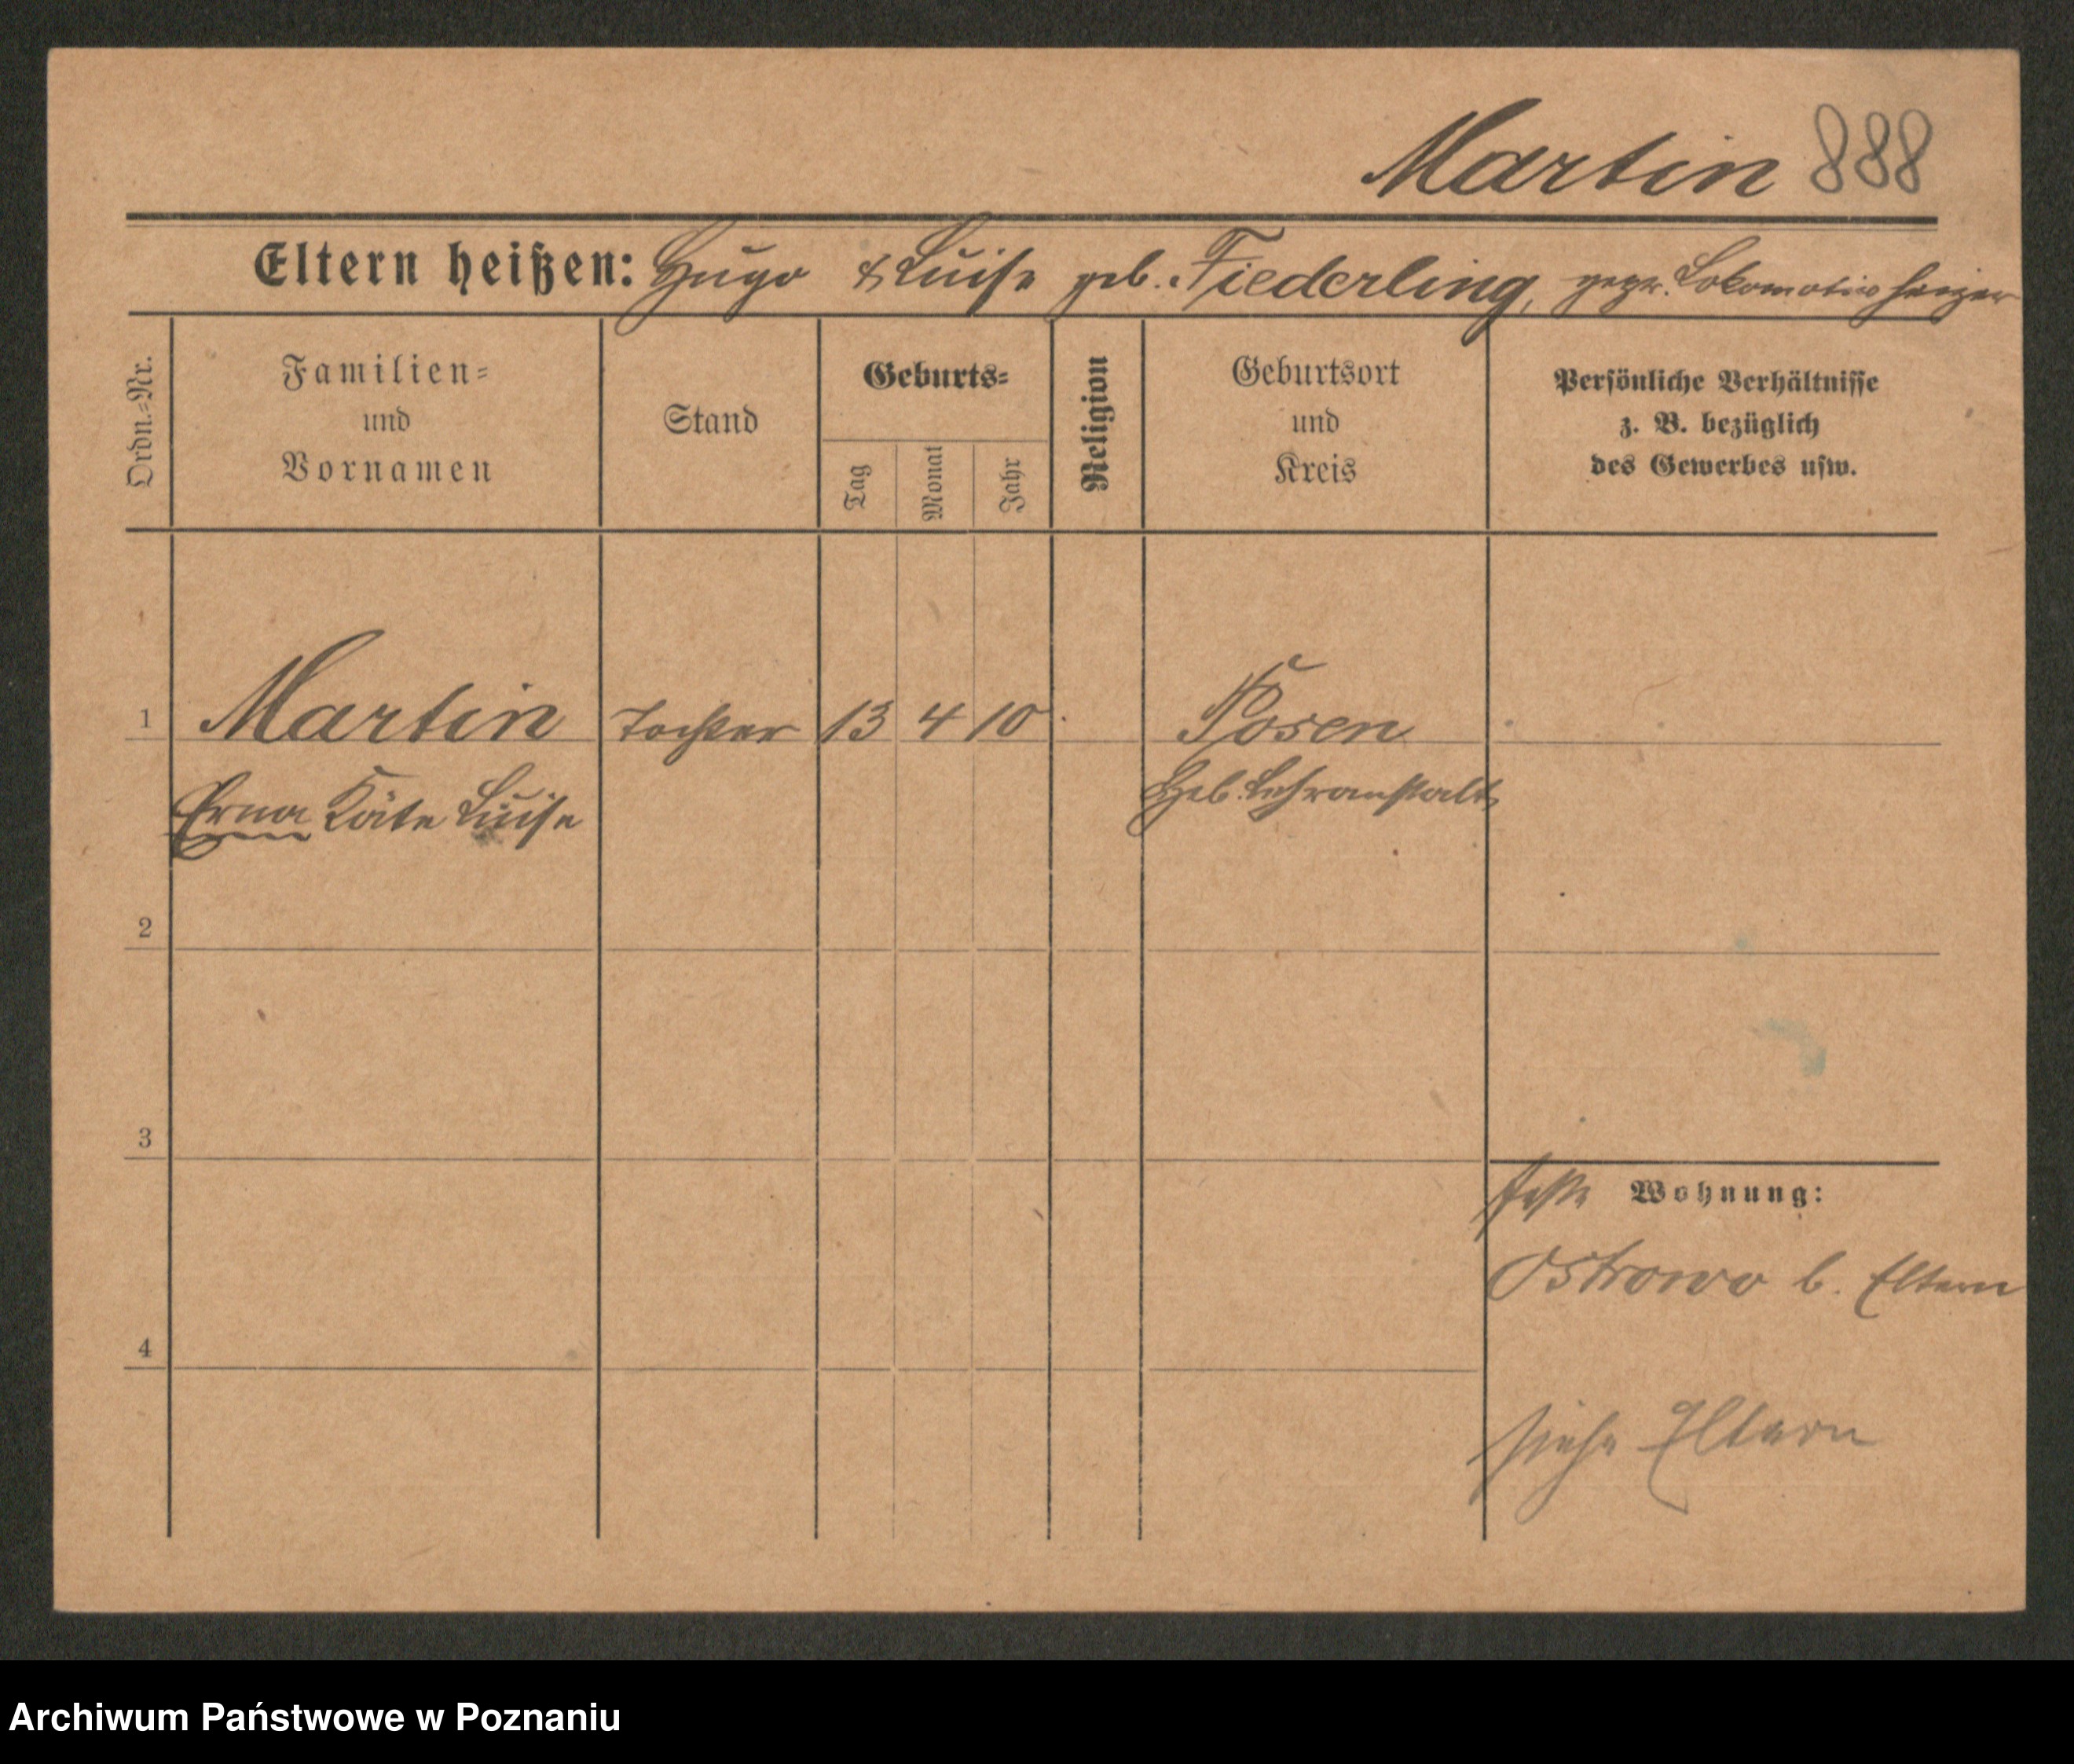 Martin 888
Eltern heißen: Hugo & Luise geb. Fiederling, gepr. Lokomotivheizer
Ordn.=Nr.
Familien=
und
Vornamen
Stand
Geburts=
Tag
Monat
Jahr
Religion
Geburtsort
und
Kreis
Persönliche Verhältnisse
z. B. bezüglich
des Gewerbes usw.
1 Martin Tochter 13 4 10 Posen
Erna Käte Luise Heb. Lehranstalt
2
3
feste Wohnung:
Ostrowo b. Eltern
4
siehe Eltern
Archiwum Państwowe w Poznaniu